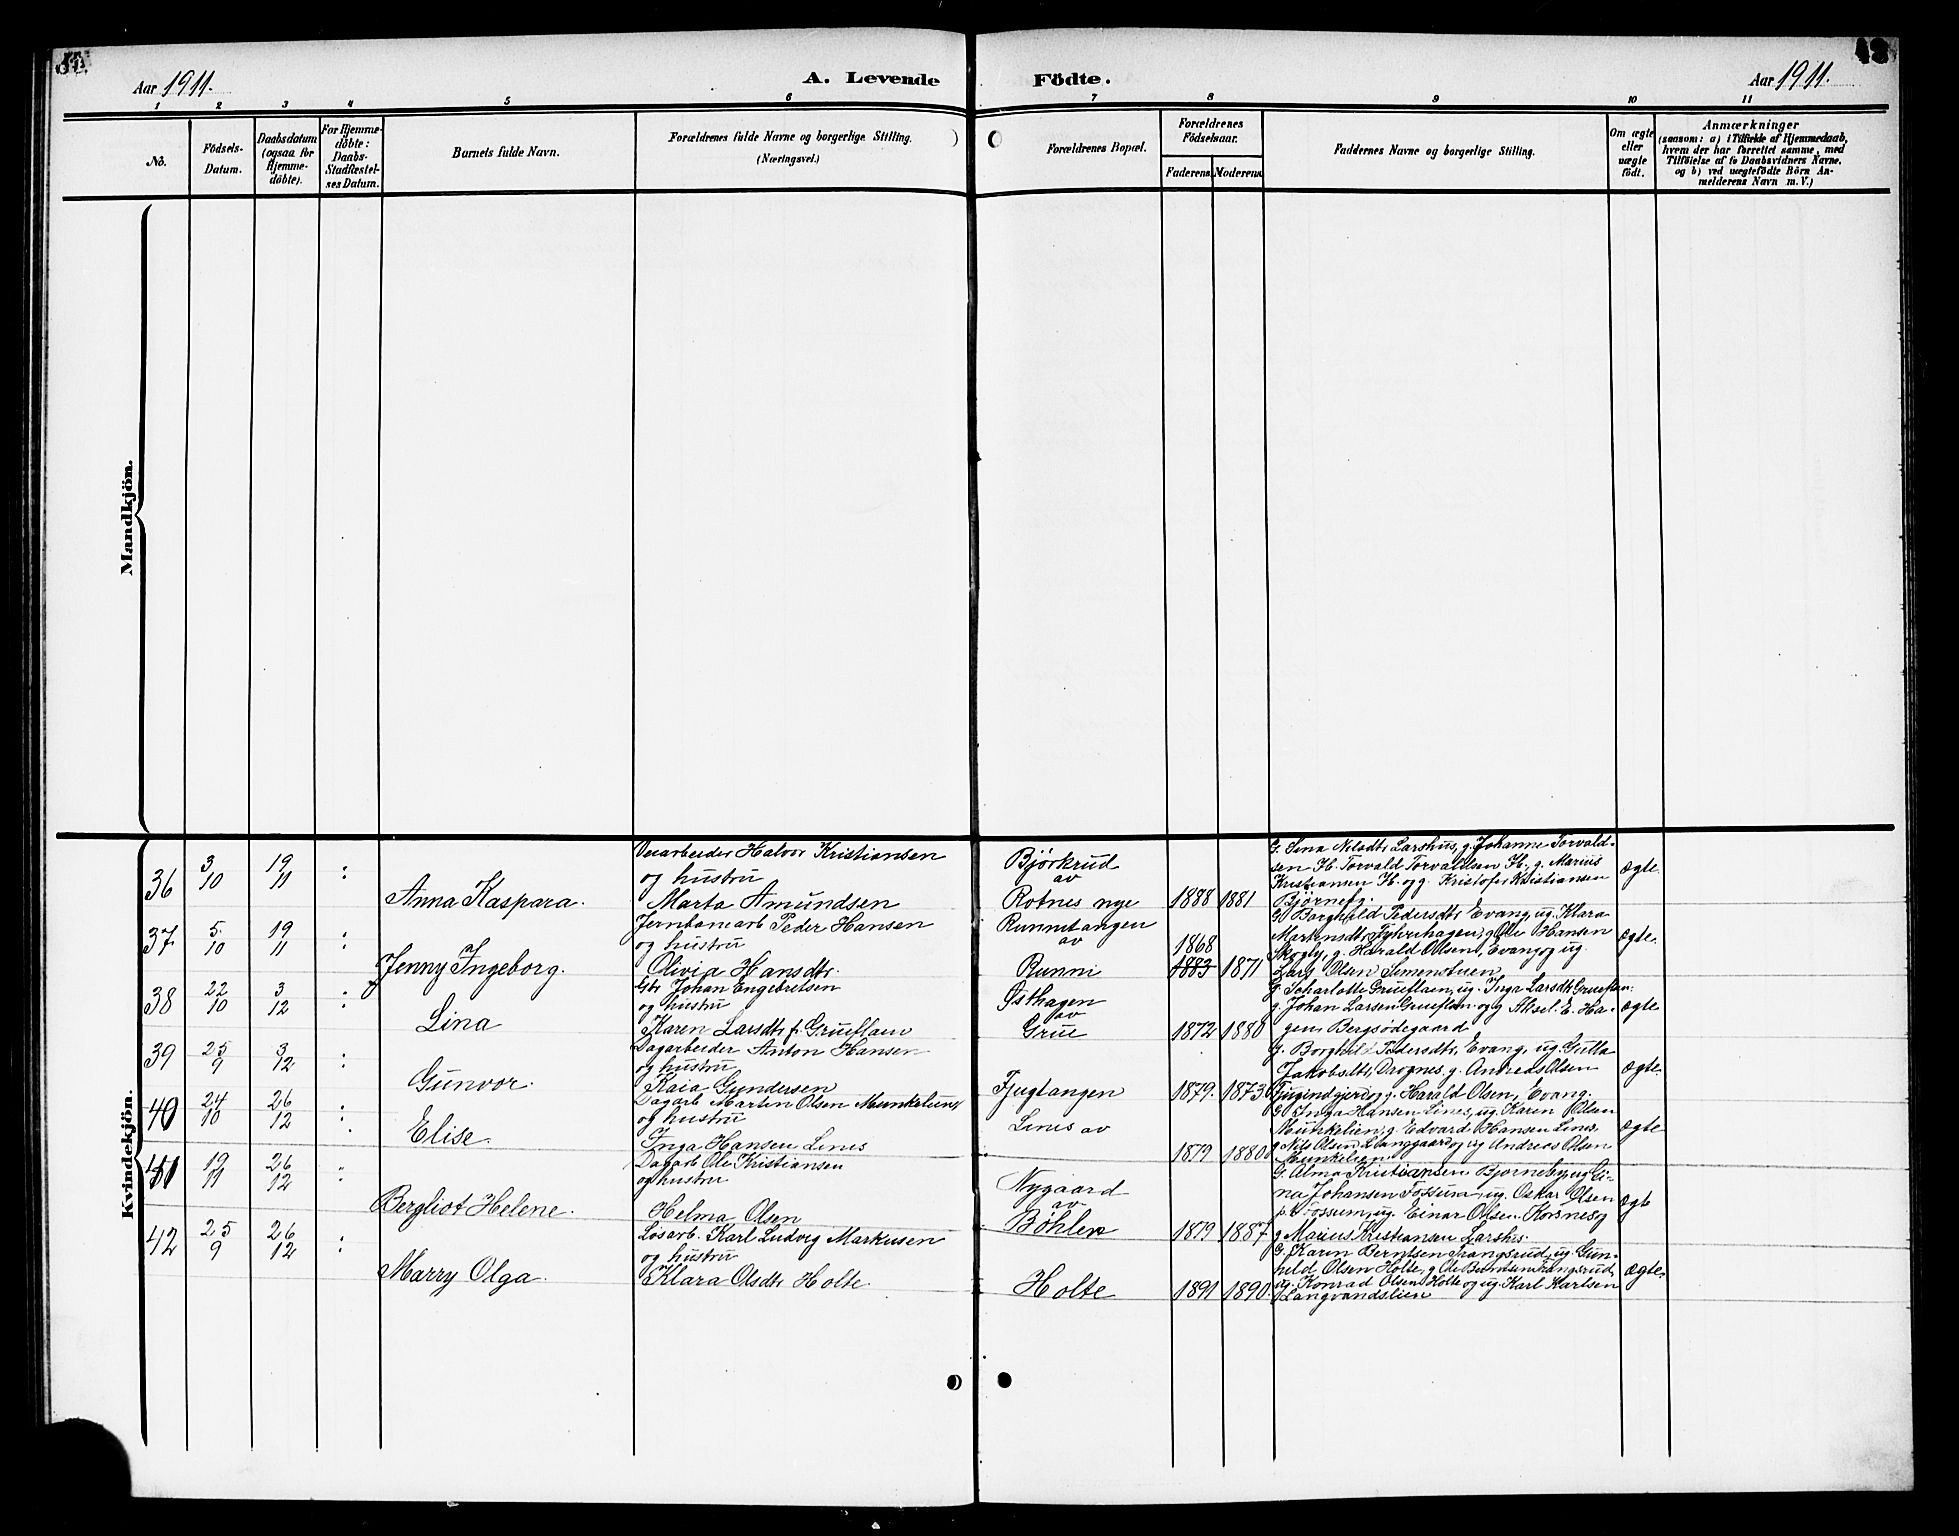 Aar 1911.
A. Levende
Födte.
Aar 1911.
43
1 2 3 4 5 6 7 8 9 10 11
Nö.
Födsels-
Datum.
Daabsdatum
(ogsaa for
Hjemme-
döbte).
For Hjemme-
döbte:
Daabs-
Stadfæstel-
ses Datum.
Barnets fulde Navn.
Forældrenes fulde Navne og borgerlige Stilling.
(Næringsvei.)
Forældrenes Bopæl.
Forældrenes
Födselsaar.
Faderens. Moderens.
Faddernes Navne og borgerlige Stilling.
Om ægte
eller
uægte
födt.
Anmærkninger
(saasom: a) i Tilfælde af Hjemmedaab,
hvem der har forrettet samme, med
Tilföielse af to Daabsvidners Navne.
og b) ved uægtefödte Börn An-
melderens Navn m. V.)
Mandkjön.
Kvindekjön.
36
3/10
19/11
:
Anna Kaspara.
Halvor Kristiansen
og hustru
Marta Amundsen
Bjørkrud
av
Rotnes nye
1888
1881
G. Lina Larshus, g. Johanne Torvald-
sen H. Torvald Torvaldsen H., g. Marius
Kristiansen H. og g. Kristofer Kristiansen
Bjørneby.
Ægte
37
5/10
19/11
:
Jenny Ingeborg.
Jernbanearb Peder Hansen
og hustru
Olivia Hansdtr.
Runnitangen
av
Runni
1868
1883
1871
G. Borghild Pedersdtr, Evang, ug. Klara
g. Ole Hansen
Skogly, g. Harald Olsen, Evang og ug
Lars Olsen Simenstuen
Ægte.
38
22/10
3/12
:
Lina
Gbr Johan Engebretsen
og hustru
Karen Larsdtr f. Grueflaen
Østhagen
av
Grue
1872
1880
g. Grueflaen, ug. Inga Larsdtr Grueflaen.
g. Johan Larsen Grueflaen og g Aksel E. Ha-
gen, Bergsødegaard
Ægte
39
25/9
3/12
:
Gunvor.
Dagarbeider Anton Hansen
og hustru
Kaia Gundersen
Fjugtangen
1879.
1873
g. Borghild Pedersdtr, Evang, ug Gulla
Jakobsdtr, Drognes, g. Andreas Olsen
g. Harald Olsen, Evang.
Ægte.
40
24/10
26/12
:
Elise.
Dagarb Martin Olsen Munkelien
og hustru
Inga Hansen Lines
Lines av
1879
1880
G. Inga Hansen Lines, ug. Karen Olsen
Munkelien, g. Edvard Hansen Lines,
g Nils Olsen Langgaard og ug Andreas Olsen
Munkelien
Ægte
41
19/11
26/12
:
Bergliot Helene.
Dagarb Ole Kristiansen
og hustru
Helma Olsen
Nygaard
av
Bøhler
1879
1887
G. Alma Kristiansen Bjørneby, ug Gi-
na Johansen Fossum, ug. Oskar Olsen
Fossum, ug. Einar Olsen Korsnes g
g Marius Kristiansen Larshus.
Ægte
42
25/9
26/12
:
Marry Olga.
Løsarb. Karl Ludvig Markusen
og hustru
Klara Olsdtr Holte
Holte
1891
1890.
G. Karen Berntsen Trangsrud, ug. Gun-
hild Olsen Holte, g Ole Berntsen Trangsrud,
ug. Konrad Olsen Holte og ug. Karl Karlsen
Langvandslien
Ægte.